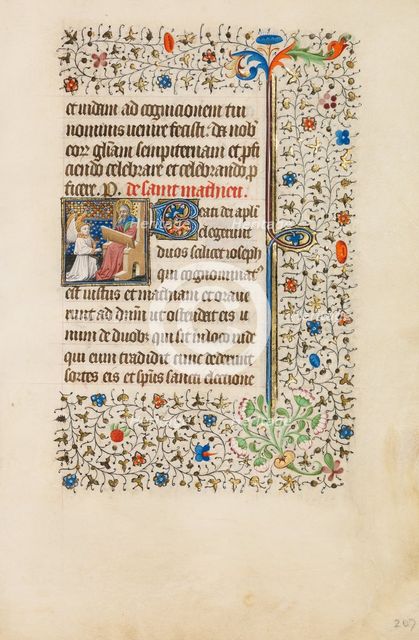 et iudam ad cognicionem tui
nominis venire fecisti: da nob'
eor' gliam sempiternam et pfi
ciendo celebrare et celebrando, p
ficere. P. de saint mathieu.
Beati dei apli
elegerunt
duos scilicet ioseph
qui cognominat'
est iustus et mathiam et oraue
runt ad dnm ut ostendat eis u
num de duob' qui sit in loco iude
qui eum tradidit et inde dederunt
sortes eis et spus sancti electione
207